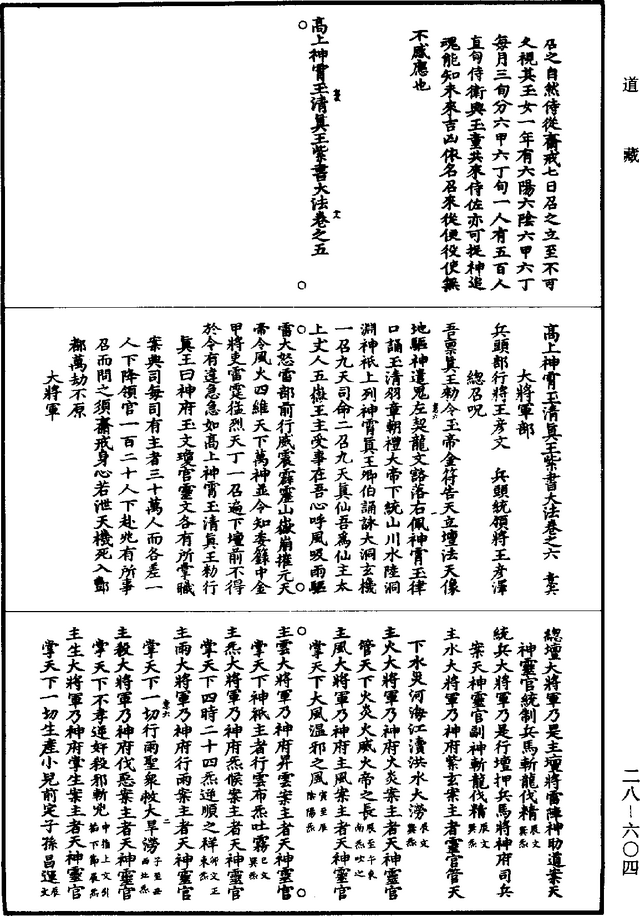 道藏
召之自然侍從齋戒七日召之立至不可
久視其玉女一年有六陽六陰六甲六丁
每月三旬分六甲六丁旬一人有五百人
直旬侍衛與玉童共來侍佐亦可提神追
魂能知未來吉凶依名召來從便役使無
不感應也
高上神霄玉清真王紫書大法卷之五
高上神霄玉清真王紫書大法卷之六
大將軍部
兵頭都行將王彥文 兵頭統領將王彥澤
總召呪
吾稟真王勑令玉帝金符告天立壇法天像
地驅神遣鬼左契龍文豁落右佩神霄玉律
口誦玉清羽章朝禮大帝下統山川水陸洞
淵神祇上列神霄真王卿伯誦詠大洞玄機
一召九天司命二召九天真仙吾爲仙主太
上丈人五嶽王主受事在吾心呼風吸雨驅
雷大怒雷部前行威震霹靂山嶽崩摧元天
帝令風火四維天下萬神並令知委籙中金
甲將吏雷霆猛烈天丁一召遍下壇前不得
於令有違急急如高上神霄玉清真王勑行
真王曰神府玉文瓊宮靈文各有所掌職
案與司每司有主者三十萬人而各差一
人下降領官一百二十人下赴兆有所事
召而問之須齋戒身心若泄天機死入酆
都萬劫不原
大將軍
總壇大將軍乃是主壇將雷陣神助道案天
神靈官統制兵馬斬龍伐精辰文巽炁
統兵大將軍乃是行壇押兵馬將神府司兵
案天神靈官副神斬龍伐精辰文巽炁
主水大將軍乃神府紫玄案主者靈官管天
下水災河海江瀆洪水大澇辰文巽炁
主火大將軍乃神府火炎案主者天神靈官
管天下火炎火威火帝之長辰至午東南炁吹之
主風大將軍乃神府主風案主者天神靈官
掌天下大風溫邪之風寅至辰陰陽炁
主雲大將軍乃神府昇雲案主者天神靈官
掌天下神祇主者行雲布炁吐霧巳文巽炁
主炁大將軍乃神府炁候案主者天神靈官
掌天下四時二十四炁逆順之祥卯文正東炁
主雨大將軍乃神府行雨案主者天神靈官
掌天下一切行雨聖衆救大旱澇子至亥西北炁
主殺大將軍乃神府伐惡案主者天神靈官
掌天下不孝逆奸殺邪斬兇
主生大將軍乃神府掌生案主者天神靈官
掌天下一切生產小兒前定子孫昌運
二八—六〇四